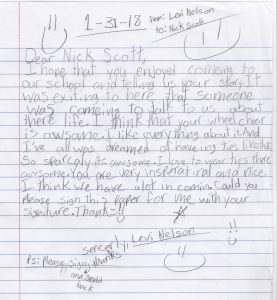 1-31-18 from: Levi Nelson
to: Nick Scott
Dear Nick Scott,
I hope that you enjoyed comeing to
our school and telling us your story. It
was exiting to here that someone
was comeing to talk to us about
there life. I think that your wheel chair
is awsome. I like everything about it. And
I've all was dreamed of haveing ties like that.
So sparcaly its awsome. I love to your ties there
awsome. You are very insperatinal and nice.
I think we have alot in comin. Could you
Please sign this paper for me with your
signiture. Thanks!!
sencerly, Levi Nelson
Ps: Please, sign, thanks
and send
back